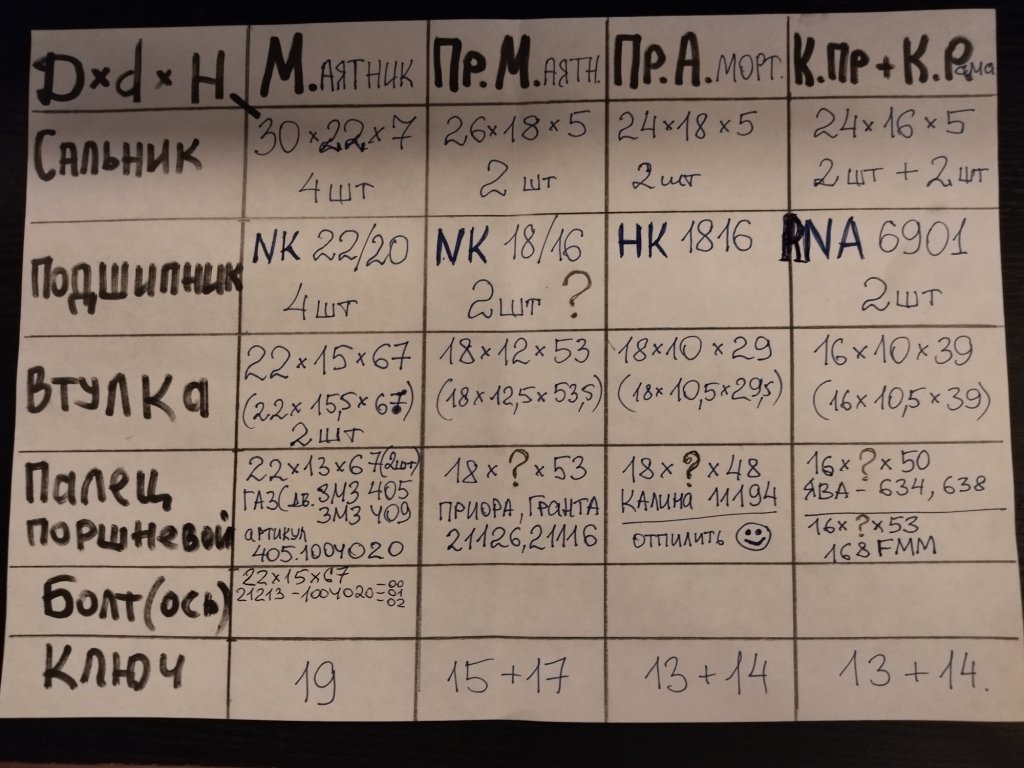 D×d×H. М.аятник Пр.М.аятн. Пр.А.морт. К.Пр+К.Рама
Сальник 30×22×7 26×18×5 24×18×5 24×16×5
4 шт 2 шт 2 шт 2 шт + 2 шт
Подшипник NK 22/20 NK 18/16 HK 1816 RNA 6901
4 шт 2 шт ? 2 шт
Втулка 22×15×67 18×12×53 18×10×29 16×10×39
(22×15,5×67) (18×12,5×53,5) (18×10,5×29,5) (16×10,5×39)
2 шт
Палец поршневой 22×13×67(2шт) 18×?×53 18×?×48 16×?×50
ГАЗ(дв. ЗМЗ 405 Приора, Гранта Калина 11194 ЯВА – 634, 638
ЗМЗ 409 21126, 21116 отпилить 16×?×53
артикул 168FMM
405.1004020
Болт(ось) 22×15×67
21213-1004020=00
=01
02
Ключ 19 15+17 13+14 13+14.